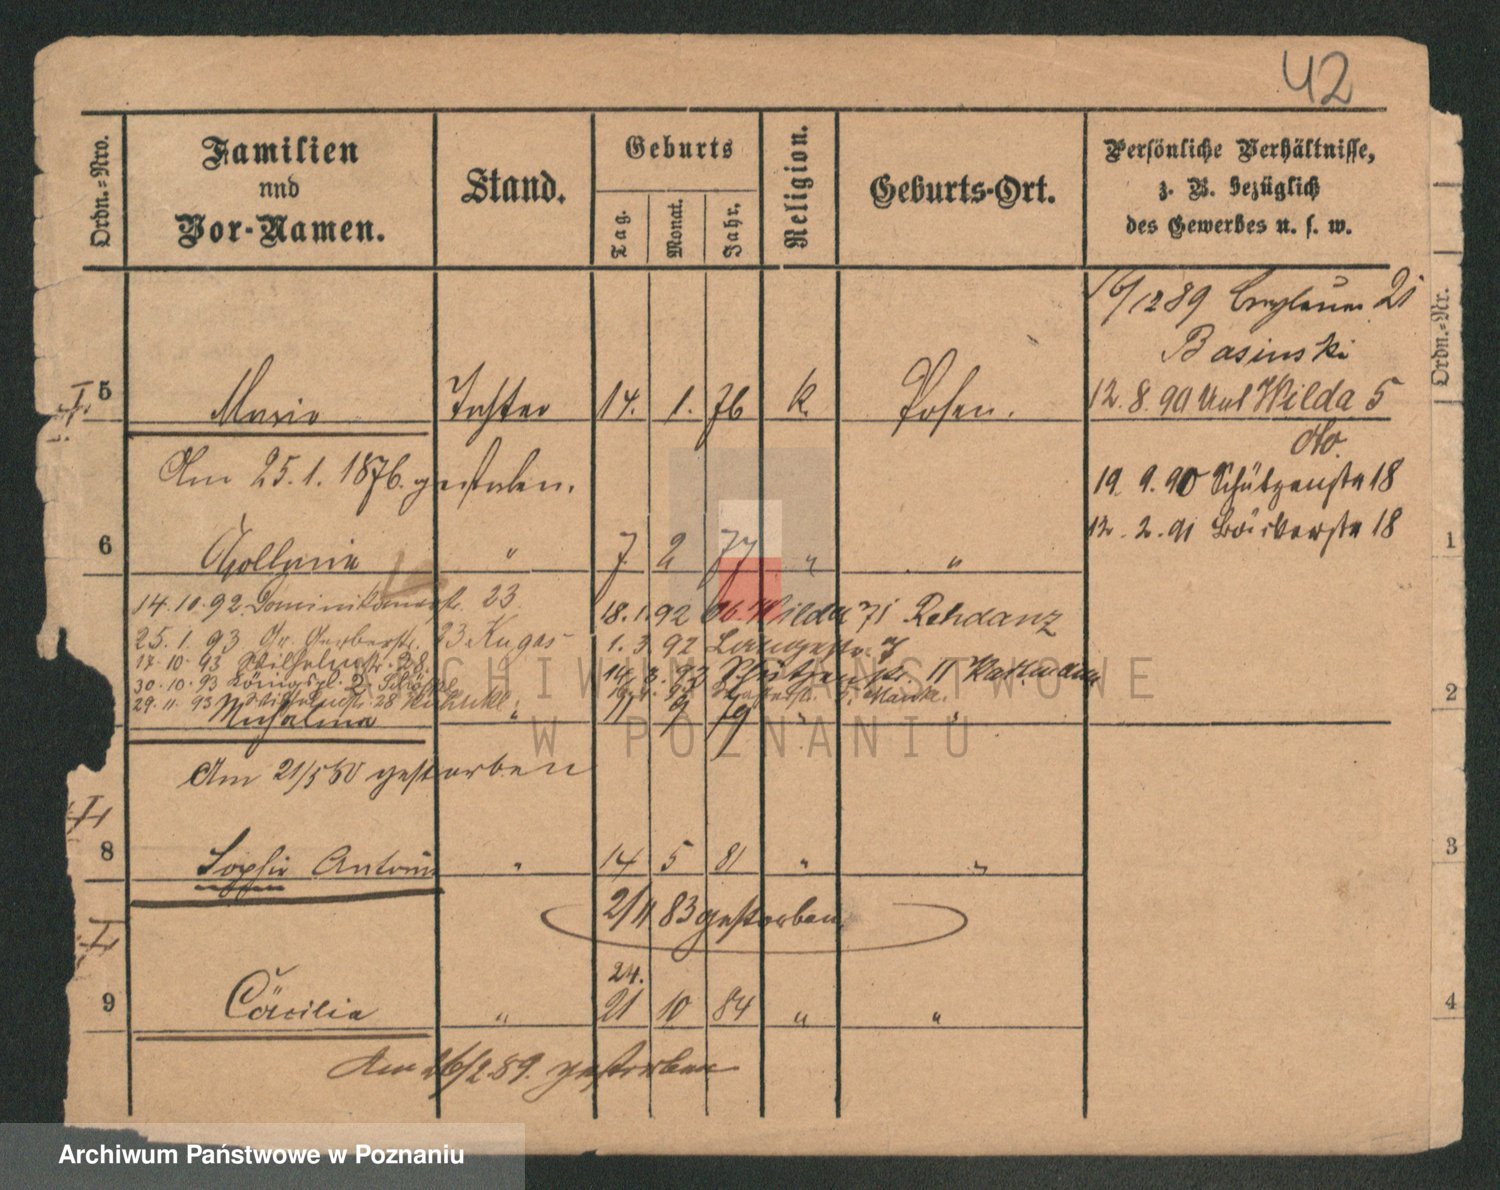 42
Ordn.-Nro.
Familien
und
Vor-Namen.
Stand.
Geburts
Tag.
Monat.
Jahr.
Religion.
Geburts-Ort.
Persönliche Verhältnisse,
z. B. bezüglich
des Gewerbes u. s. w.
Ordn.-Nr.
16/12 89 21
Basinski
5 Maria Tochter 14. 1. 76 k. Posen.
12. 8. 90 Wilda 5
Am 25. 1. 1876. gestorben.
19. 9. 90 Schützenstr 18
12. 2. 91 Bäckerstr 18
6 " 7 2 77 " "
1
14. 10. 92 Dominikanerstr. 23
18. 1. 92 Wilda 71 Rehdanz
25. 1. 93 Gr. Gerberstr. 23
1. 3. 92 Langestr. 7
17. 10. 93 Wilhelmstr. 28.
Schützenstr. 11
30. 10. 93 Königspl. 2
29. 11. 93 Wilhelmstr. 28
" 11 9 79 " "
2
Am 21/5 80 gestorben
8 Sophie Antonie " 14 5 81 " "
3
2/11 83 gestorben
24.
9 Cäcilia " 21 10 84 " "
4
Am 26/2 89. gestorben
ARCHIWUM PAŃSTWOWE
W POZNANIU
Archiwum Państwowe w Poznaniu